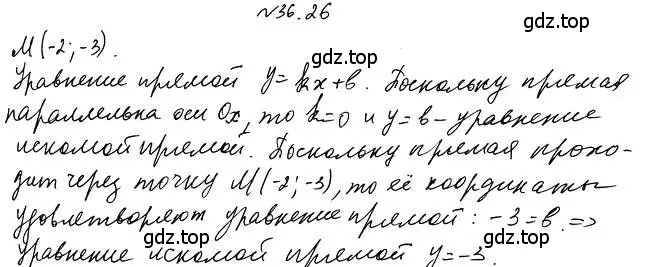 №36.26
gdz.top
M(-2; -3).
gdz.top
Уравнение прямой y=kx+b. Поскольку прямая
параллельна оси Ox, то k=0 и y=b – уравнение
искомой прямой. Поскольку прямая прохо-
дит через точку M(-2; -3), то её координаты
удовлетворяют уравнение прямой: -3=b. =>
gdz.top gdz.top
уравнение искомой прямой y=-3.